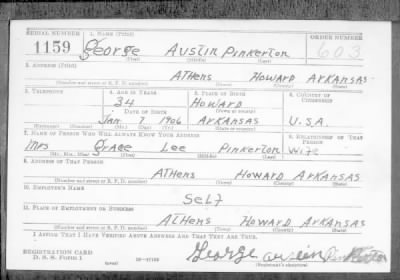 SERIAL NUMBER 1. NAME (Print) ORDER NUMBER
1159 George Austin Pinkerton 603
(First) (Middle) (Last)
2. ADDRESS (Print)
Athens Howard Arkansas
(Number and street or R. F. D. number) (Town) (County) (State)
3. TELEPHONE 4. AGE IN YEARS 5. PLACE OF BIRTH 6. COUNTRY OF
CITIZENSHIP
34 Howard
DATE OF BIRTH (Town or county)
Jan 7 1906 Arkansas U.S.A.
(Exchange) (Number) (Mo.) (Day) (Yr.) (State or country)
7. NAME OF PERSON WHO WILL ALWAYS KNOW YOUR ADDRESS 8. RELATIONSHIP OF THAT
PERSON
Mrs Grace Lee Pinkerton Wife
(Mr., Mrs., Miss) (First) (Middle) (Last)
9. ADDRESS OF THAT PERSON
Athens Howard Arkansas
(Number and street or R. F. D. number) (Town) (County) (State)
10. EMPLOYER'S NAME
Self
11. PLACE OF EMPLOYMENT OR BUSINESS
Athens Howard Arkansas
(Number and street or R. F. D. number) (Town) (County) (State)
I AFFIRM THAT I HAVE VERIFIED ABOVE ANSWERS AND THAT THEY ARE TRUE.
REGISTRATION CARD
D. S. S. Form 1 George
(over) (Registrant's signature)